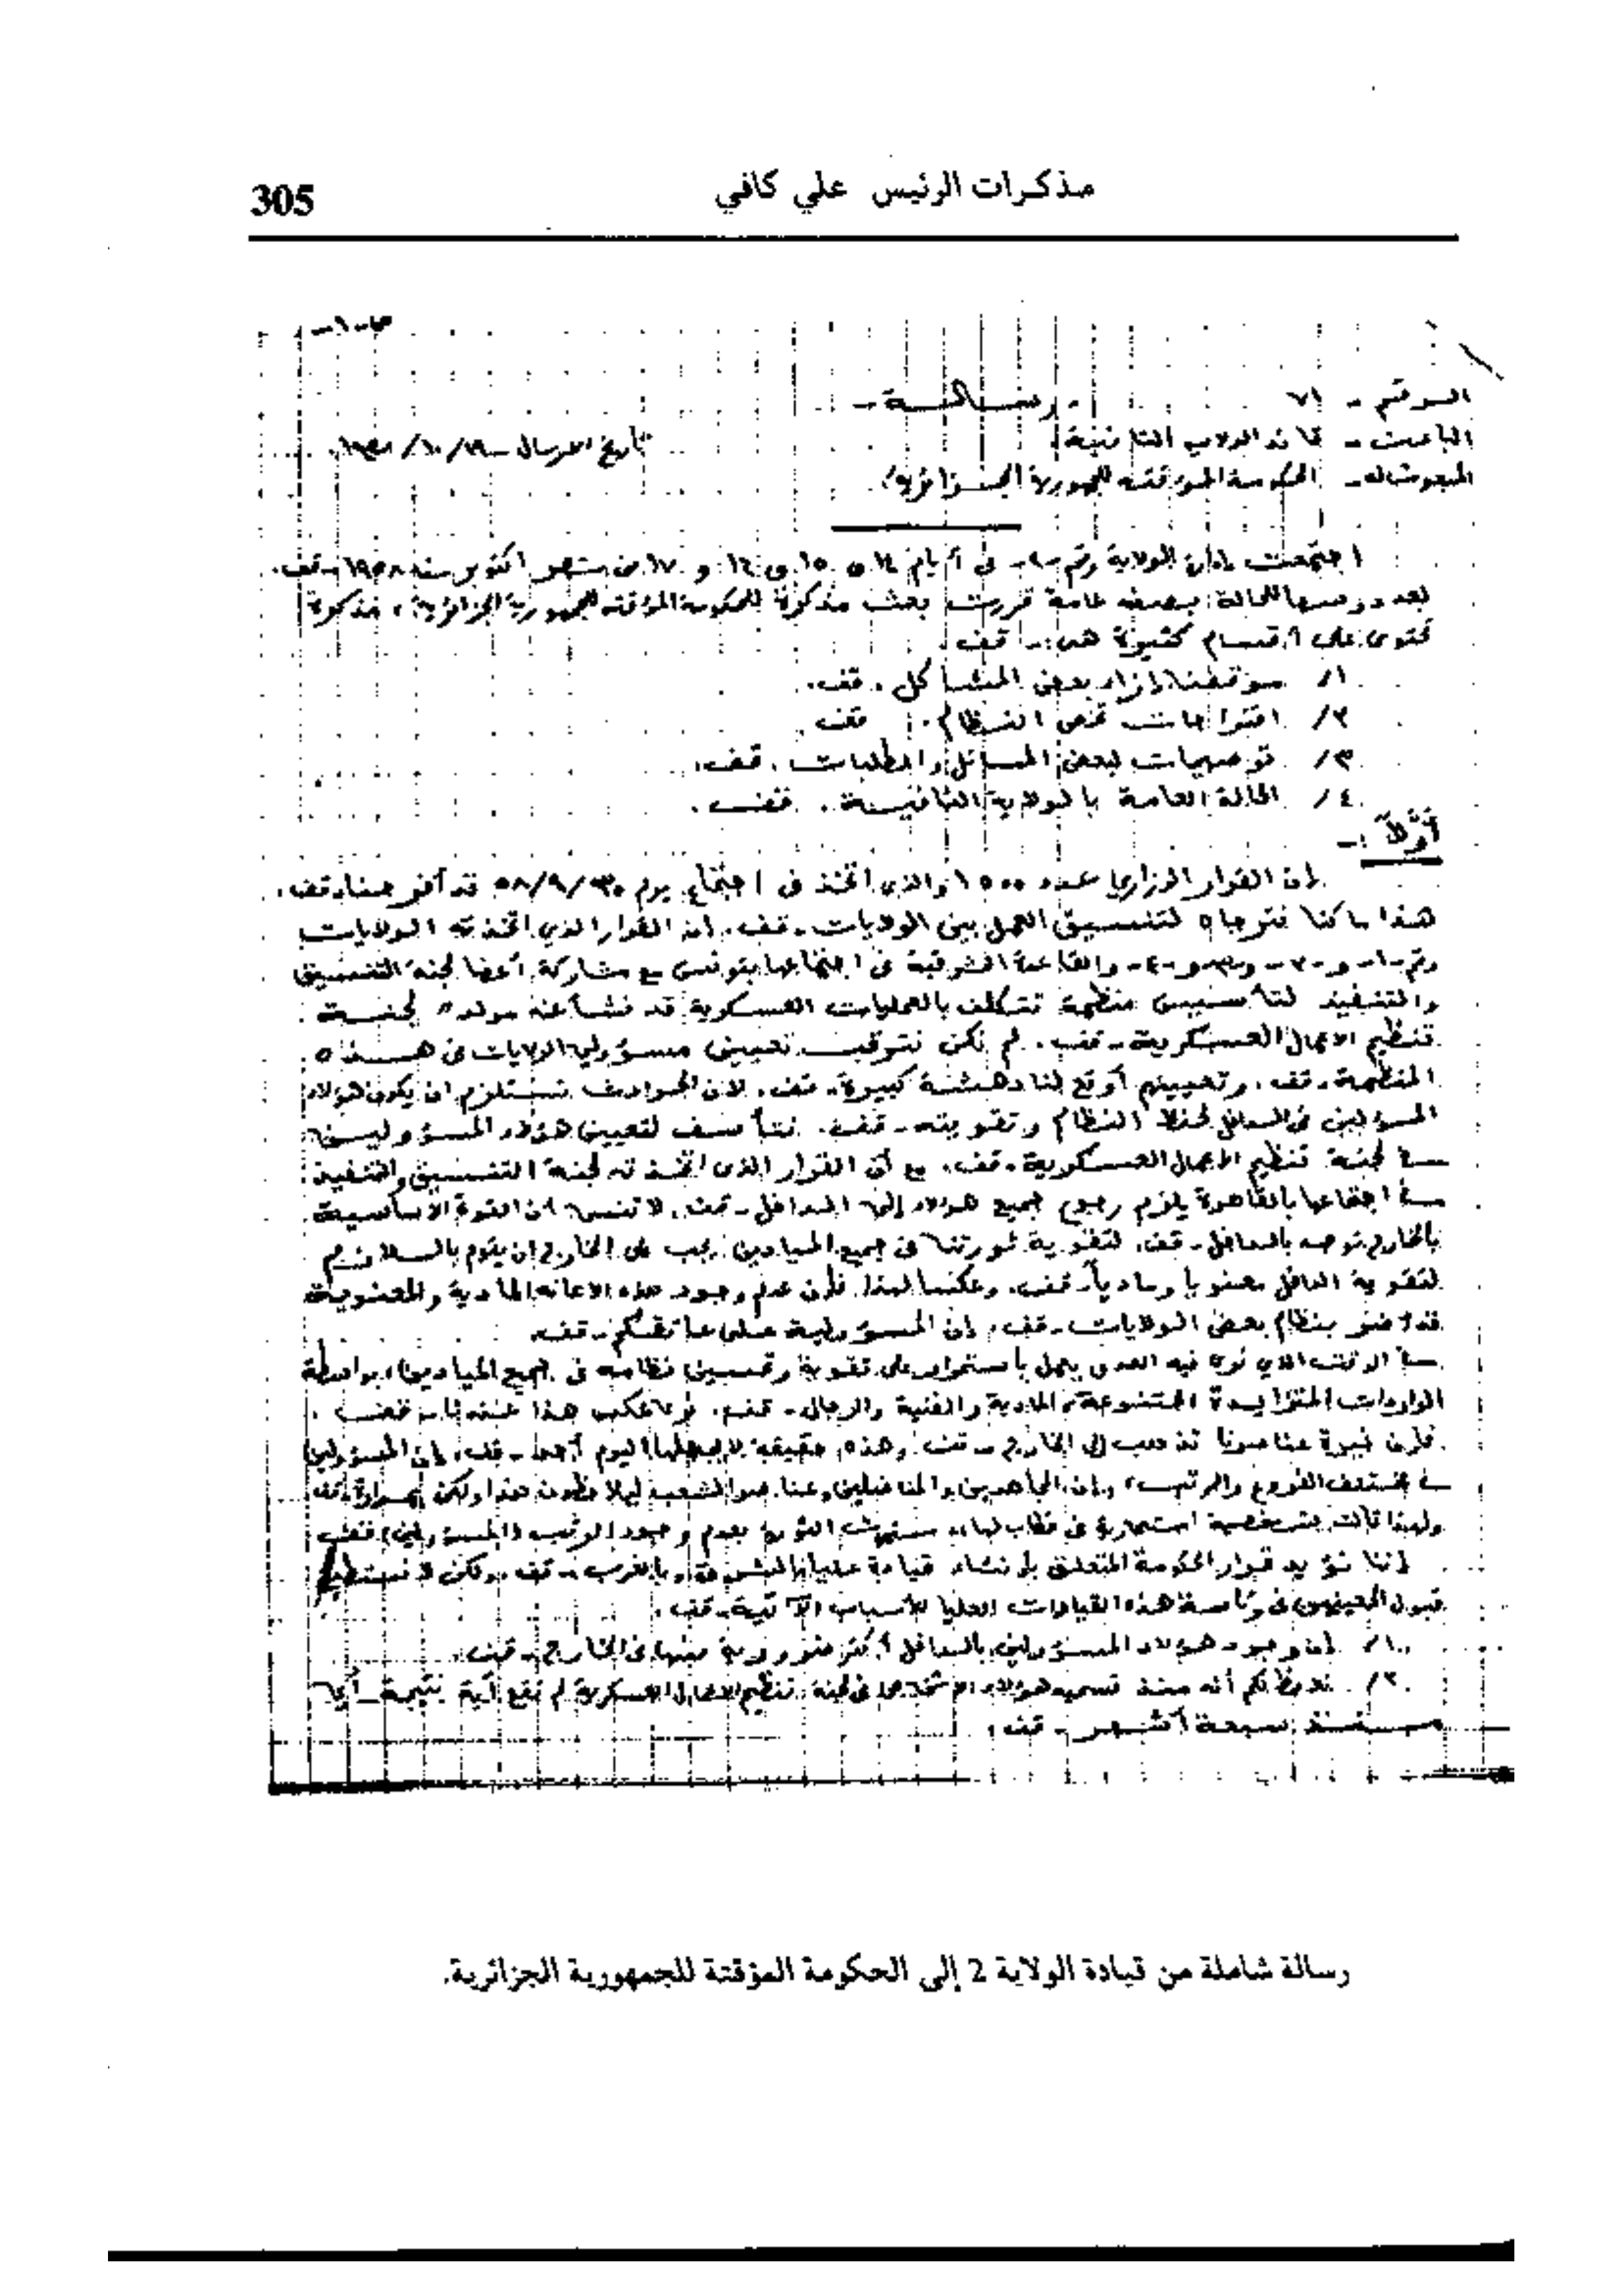 305
مذكرات الرئيس علي كافي
صـ -١-
الرقم - ٧١
- رسالة -
الباعث - قائد الولاية الثانية
تاريخ الارسال -
المبعوث اليه - الحكومة المؤقتة للجمهورية الجزائرية
اجتمعت الولاية رقم -٢- في أيام ١٤ و ١٥ و ١٦ و ١٧ من شهر اكتوبر سنة ١٩٥٨ - قف.
بعد درسها للحالة بصفة عامة قررت بعث مذكرة للحكومة المؤقتة للجمهورية الجزائرية، مذكرة
تحتوي على أقسام كثيرة هي: - قف
١/ موقفنا إزاء بعض المشاكل. قف.
٢/ اقتراحات تخص النظام. قف.
٣/ توصيات لبعض المسائل والطلبات. قف.
٤/ الحالة العامة بالولاية الثانية. قفـ.
أولاً :-
إن القرار الوزاري عدد ١٥٠٠ والذي اتخذ في اجتماع يوم ٥٨/٩/٣٠ قد قف.
هذا ما كنا نترجاه لتنسيق العمل بين الولايات - قف. ان القرار الذي اتخذته الولايات
رقم -١- و -٣- و -٤- والقاعدة الشرقية في اجتماعها بتونس مع مشاركة أعضاء لجنة التنسيق
والتنفيذ لتأسيس منظمة تتكلف بالعمليات العسكرية قد نشأ عنه مولد لجنـة
تنظيم الاعمال العسكرية - قف. لم نكن نترقب تعيين مسؤولي الولايات في هـذه
المنظمة - قف. وتعيينهم أوقع لنا دهشة كبيرة - قف. لان الحوادث تستلزم ان يكون هؤلاء
المسؤولين في الداخل لحفظ النظام وتقويته - قف. نتأسف لتعيين هؤلاء المسؤوليـن
في لجنة تنظيم الاعمال العسكرية - قف. مع أن القرار الذي اتخذته لجنة التنسيق والتنفيذ
في اجتماعها بالقاهرة يلزم رجوع جميع هؤلاء إلى الداخل - قف. لا ننسى ان القوة الاساسية
بالخارج توجد بالداخل - قف. لتقوية ثورتنا في جميع الميادين يجب على الخارج ان يقوم بالـلازم
لتقوية الداخل معنويا وماديا - قف. وعكسا لهذا فان عدم وجود هذه الاعانة المادية والمعنوية
قد اضر بنظام بعض الولايات - قف. إن المسؤولية على عاتقكم - قف.
في الوقت الذي نرى فيه العدو يعمل باستمرار على تقوية وتحسين نظامه في جميع الميادين، بواسطة
الواردات المتزايدة المتنوعة، المادية والفنية والرجال - قف. نرى عكس هذا عندنا - قف.
فان خيرة عناصرنا تذهب إلى الخارج - قف. وهذه حقيقة لا يجهلها اليوم أحد - قف. إن المسؤولين
في مختلف الفروع والرتب، وإن المجاهدين والمناضلين وعناصر الشعب ليلاحظون هذا ولكن بمرارة - قف
ولهذا قالت شخصية استعمارية في خطاب لها، ستموت الثورة بعدم وجود (المسؤولين) قف
إننا نؤيد قرار الحكومة المتعلق بإنشاء قيادة عليا بالشرق وبالغرب - قف. ولكن لا نستطيع
قبول المعينين في رئاسة هذه القيادات العليا للأسباب الآتية - قف.
١/ إن وجود هؤلاء المسؤولين بالداخل أكثر ضرورة منها في الخارج - قف.
٢/ نلاحظ لكم أنه منذ تسمية هؤلاء الاشخاص في لجنة تنظيم الاعمال العسكرية لم تقع أية نتيجة - أي
منـذ سبعة أشهـر - قف.
رسالة شاملة من قيادة الولاية 2 إلى الحكومة المؤقتة للجمهورية الجزائرية.